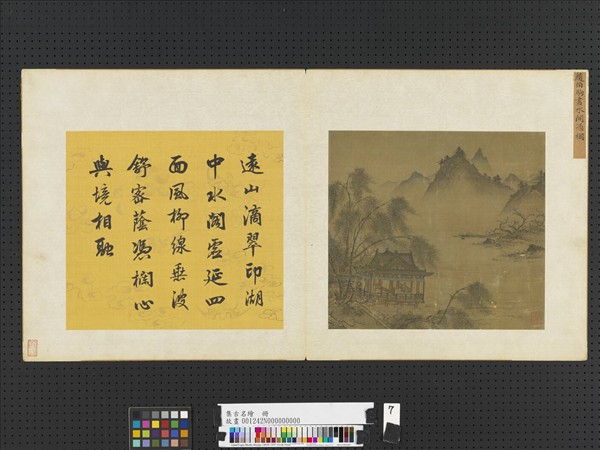 趙伯駒畫水閣憑欄
遠山滴翠印湖
中水閣虛延四
面風柳線垂波
舒密蔭憑欄心
與境相融
集古名繪 冊
故畫 001242N000000000
7